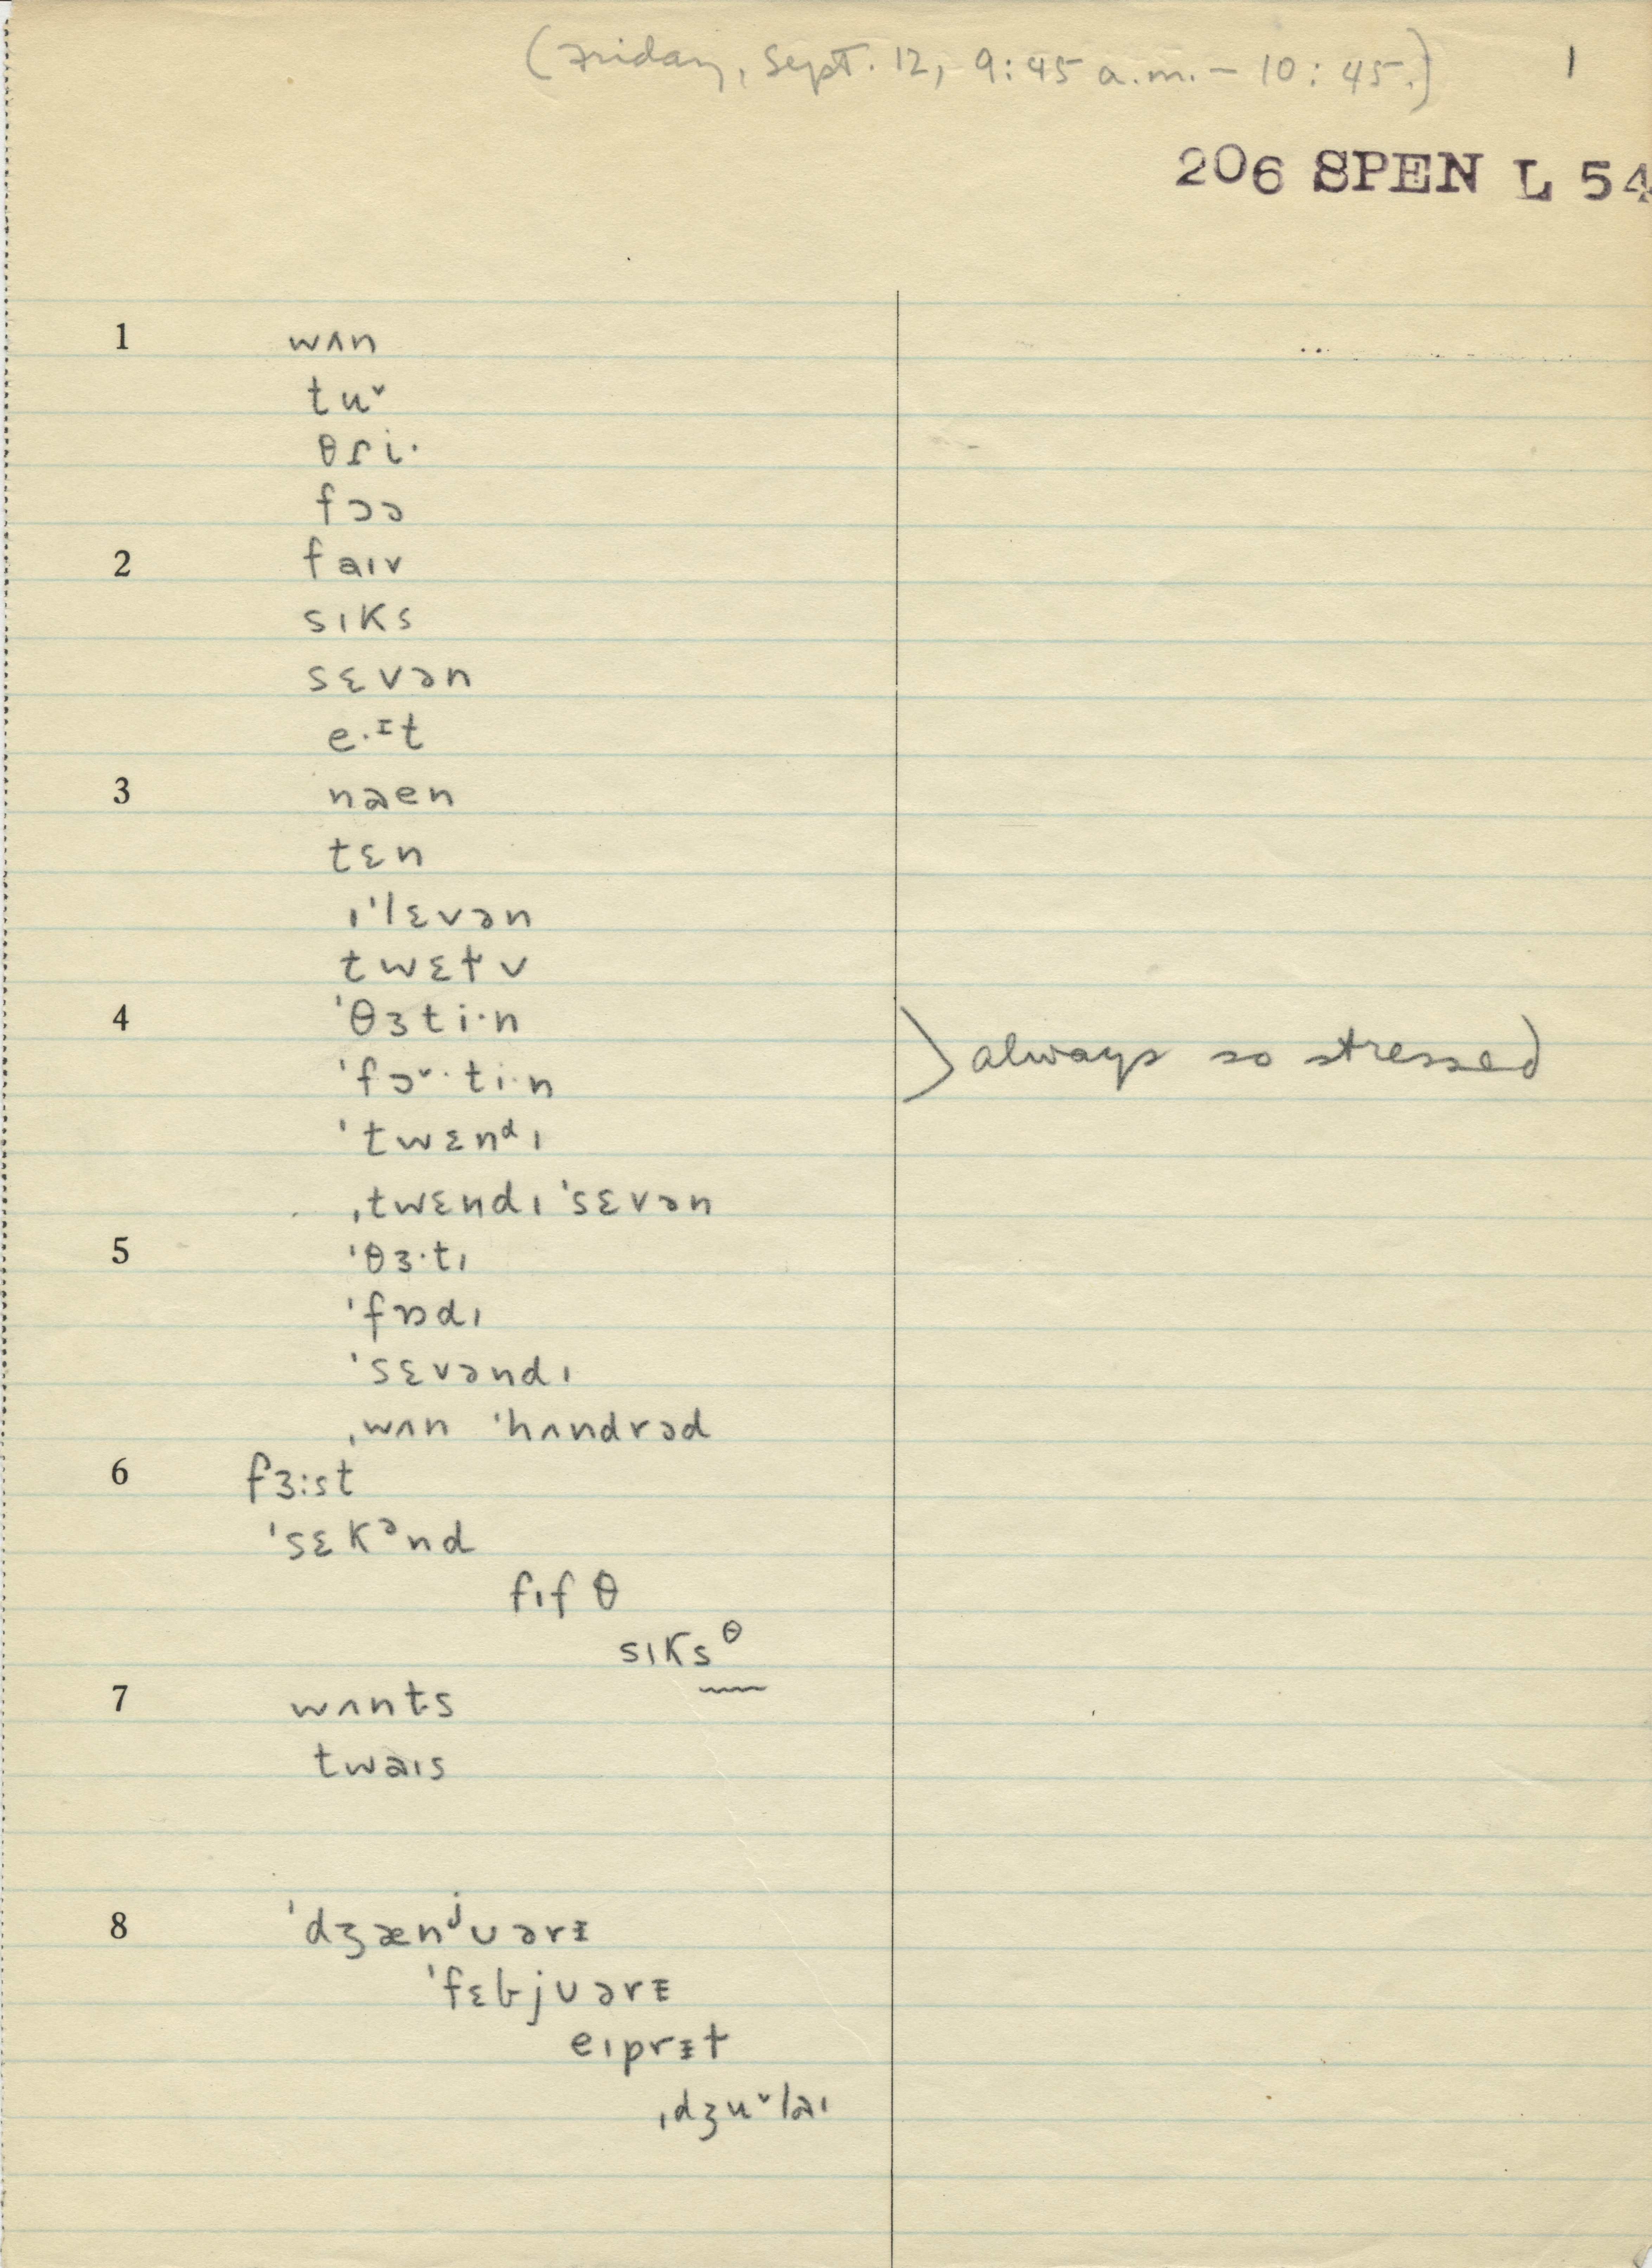 (Friday, Sept. 12, 9:45 a.m. – 10:45.) 1
206 SPEN L 54
1 wʌn
tuᵛ
θɾi·
fɔə
2 faɪv
sɪks
sɛvən
e·ᴵt
3 naen
tɛn
ɪˈlɛvən
twɛɫv
4 ˈθɜti·n
ˈfɔᵛ·ti·n
) always so stressed
ˈtwɛnᵈɪ
ˌtwɛndɪ ˈsɛvən
5 ˈθɜ·tɪ
ˈfɒdɪ
ˈsɛvəndɪ
ˌwʌn ˈhʌndrəd
6 fɜ:ɪst
ˈsɛkᵊnd
fɪfθ
sɪksᶿ
7 wʌnts
twaɪs
8 ˈdʒænʲʊərɪ
ˈfɛbjʊərɪ
eɪprɪɫ
ˌdʒuᵛlaɪ